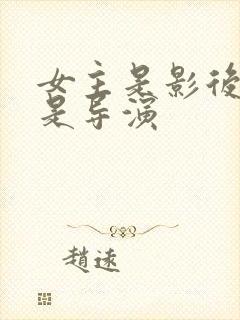 女主是影後
是导演
趙遠